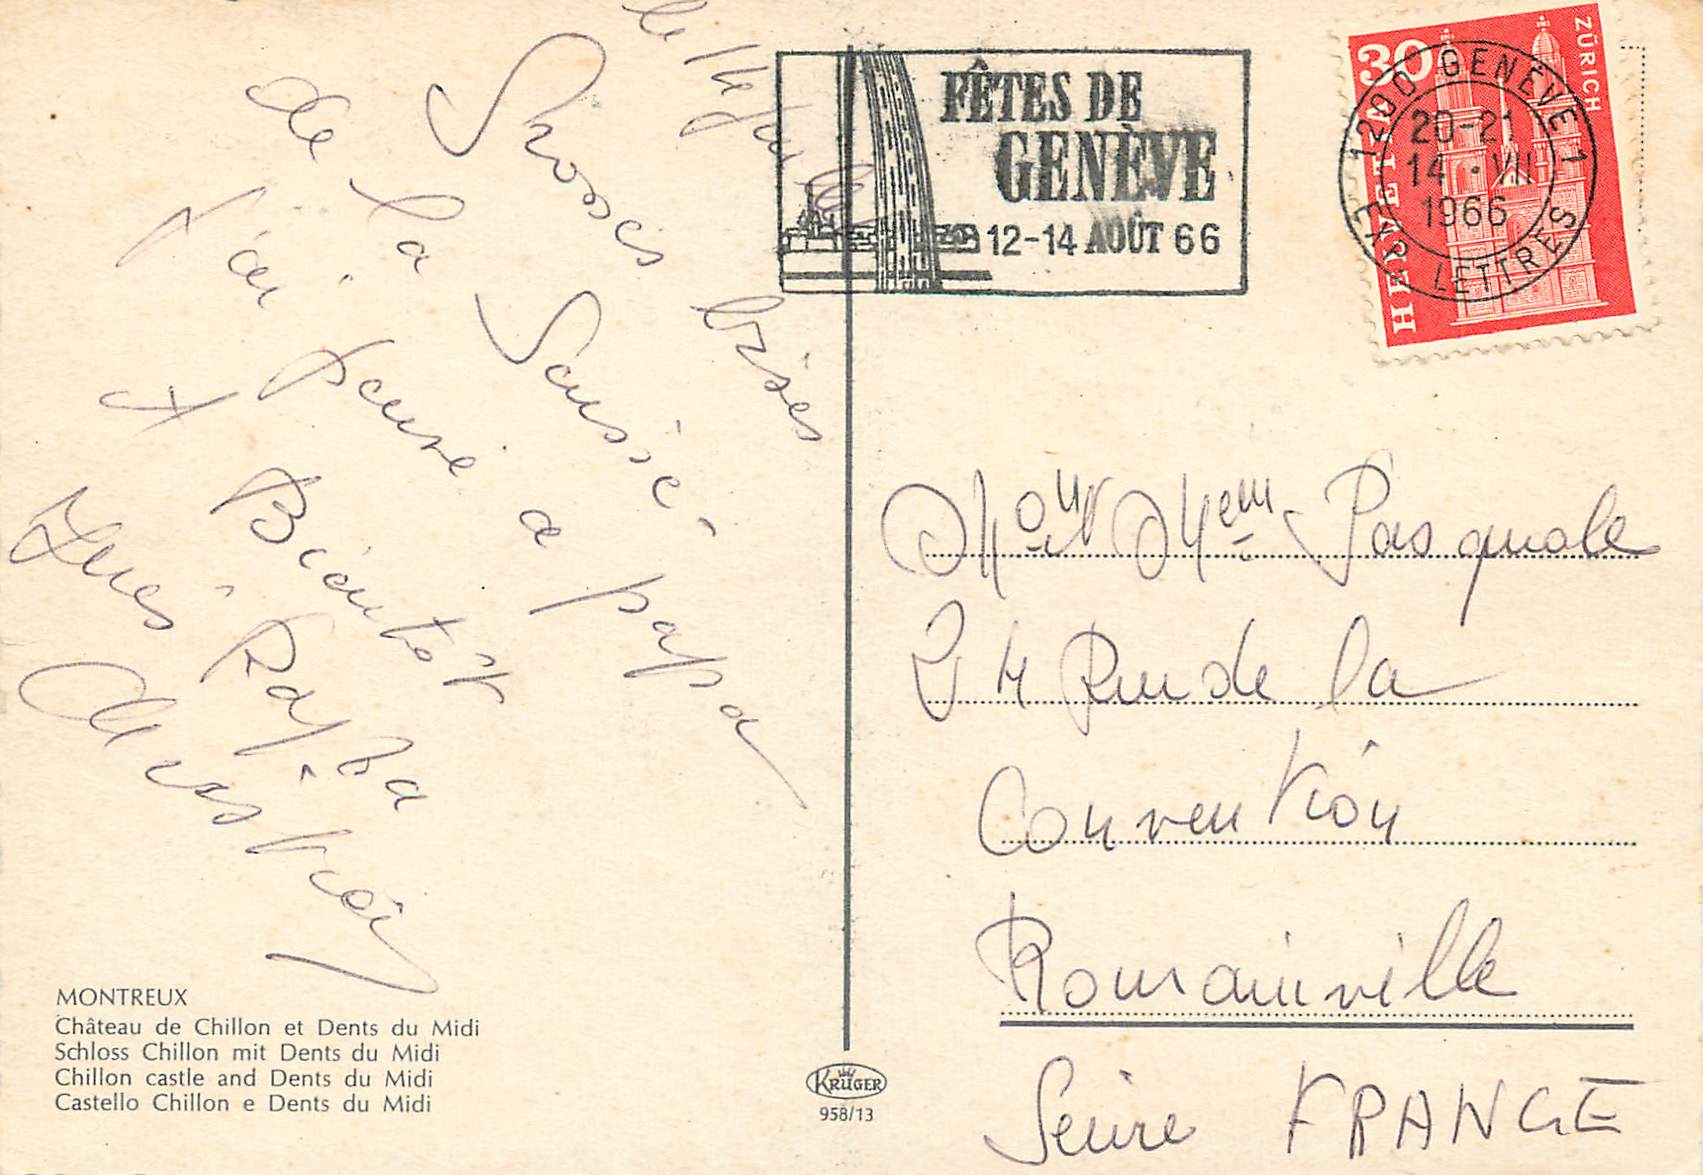 le 14 Juillet
Groses bises
de la Suisse
j'ai pensé a papa
A Bientôt
Inès Rayba
Christian
MONTREUX
Château de Chillon et Dents du Midi
Schloss Chillon mit Dents du Midi
Chillon castle and Dents du Midi
Castello Chillon e Dents du Midi
KRÜGER
958/13
FÊTES DE
GENÈVE
12-14 AOÛT 66
30
ZÜRICH
HELVETIA
1200 GENÈVE 1
20-21
14.VII
1966
EXP. LETTRES
Pasquale
24 Rue de la
Convention
Romainville
Seine FRANCE